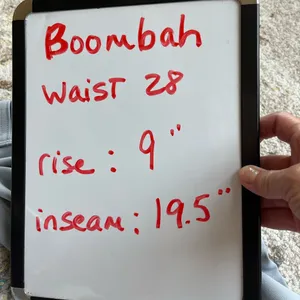 Boombah
Waist 28
rise: 9"
inseam: 19.5"